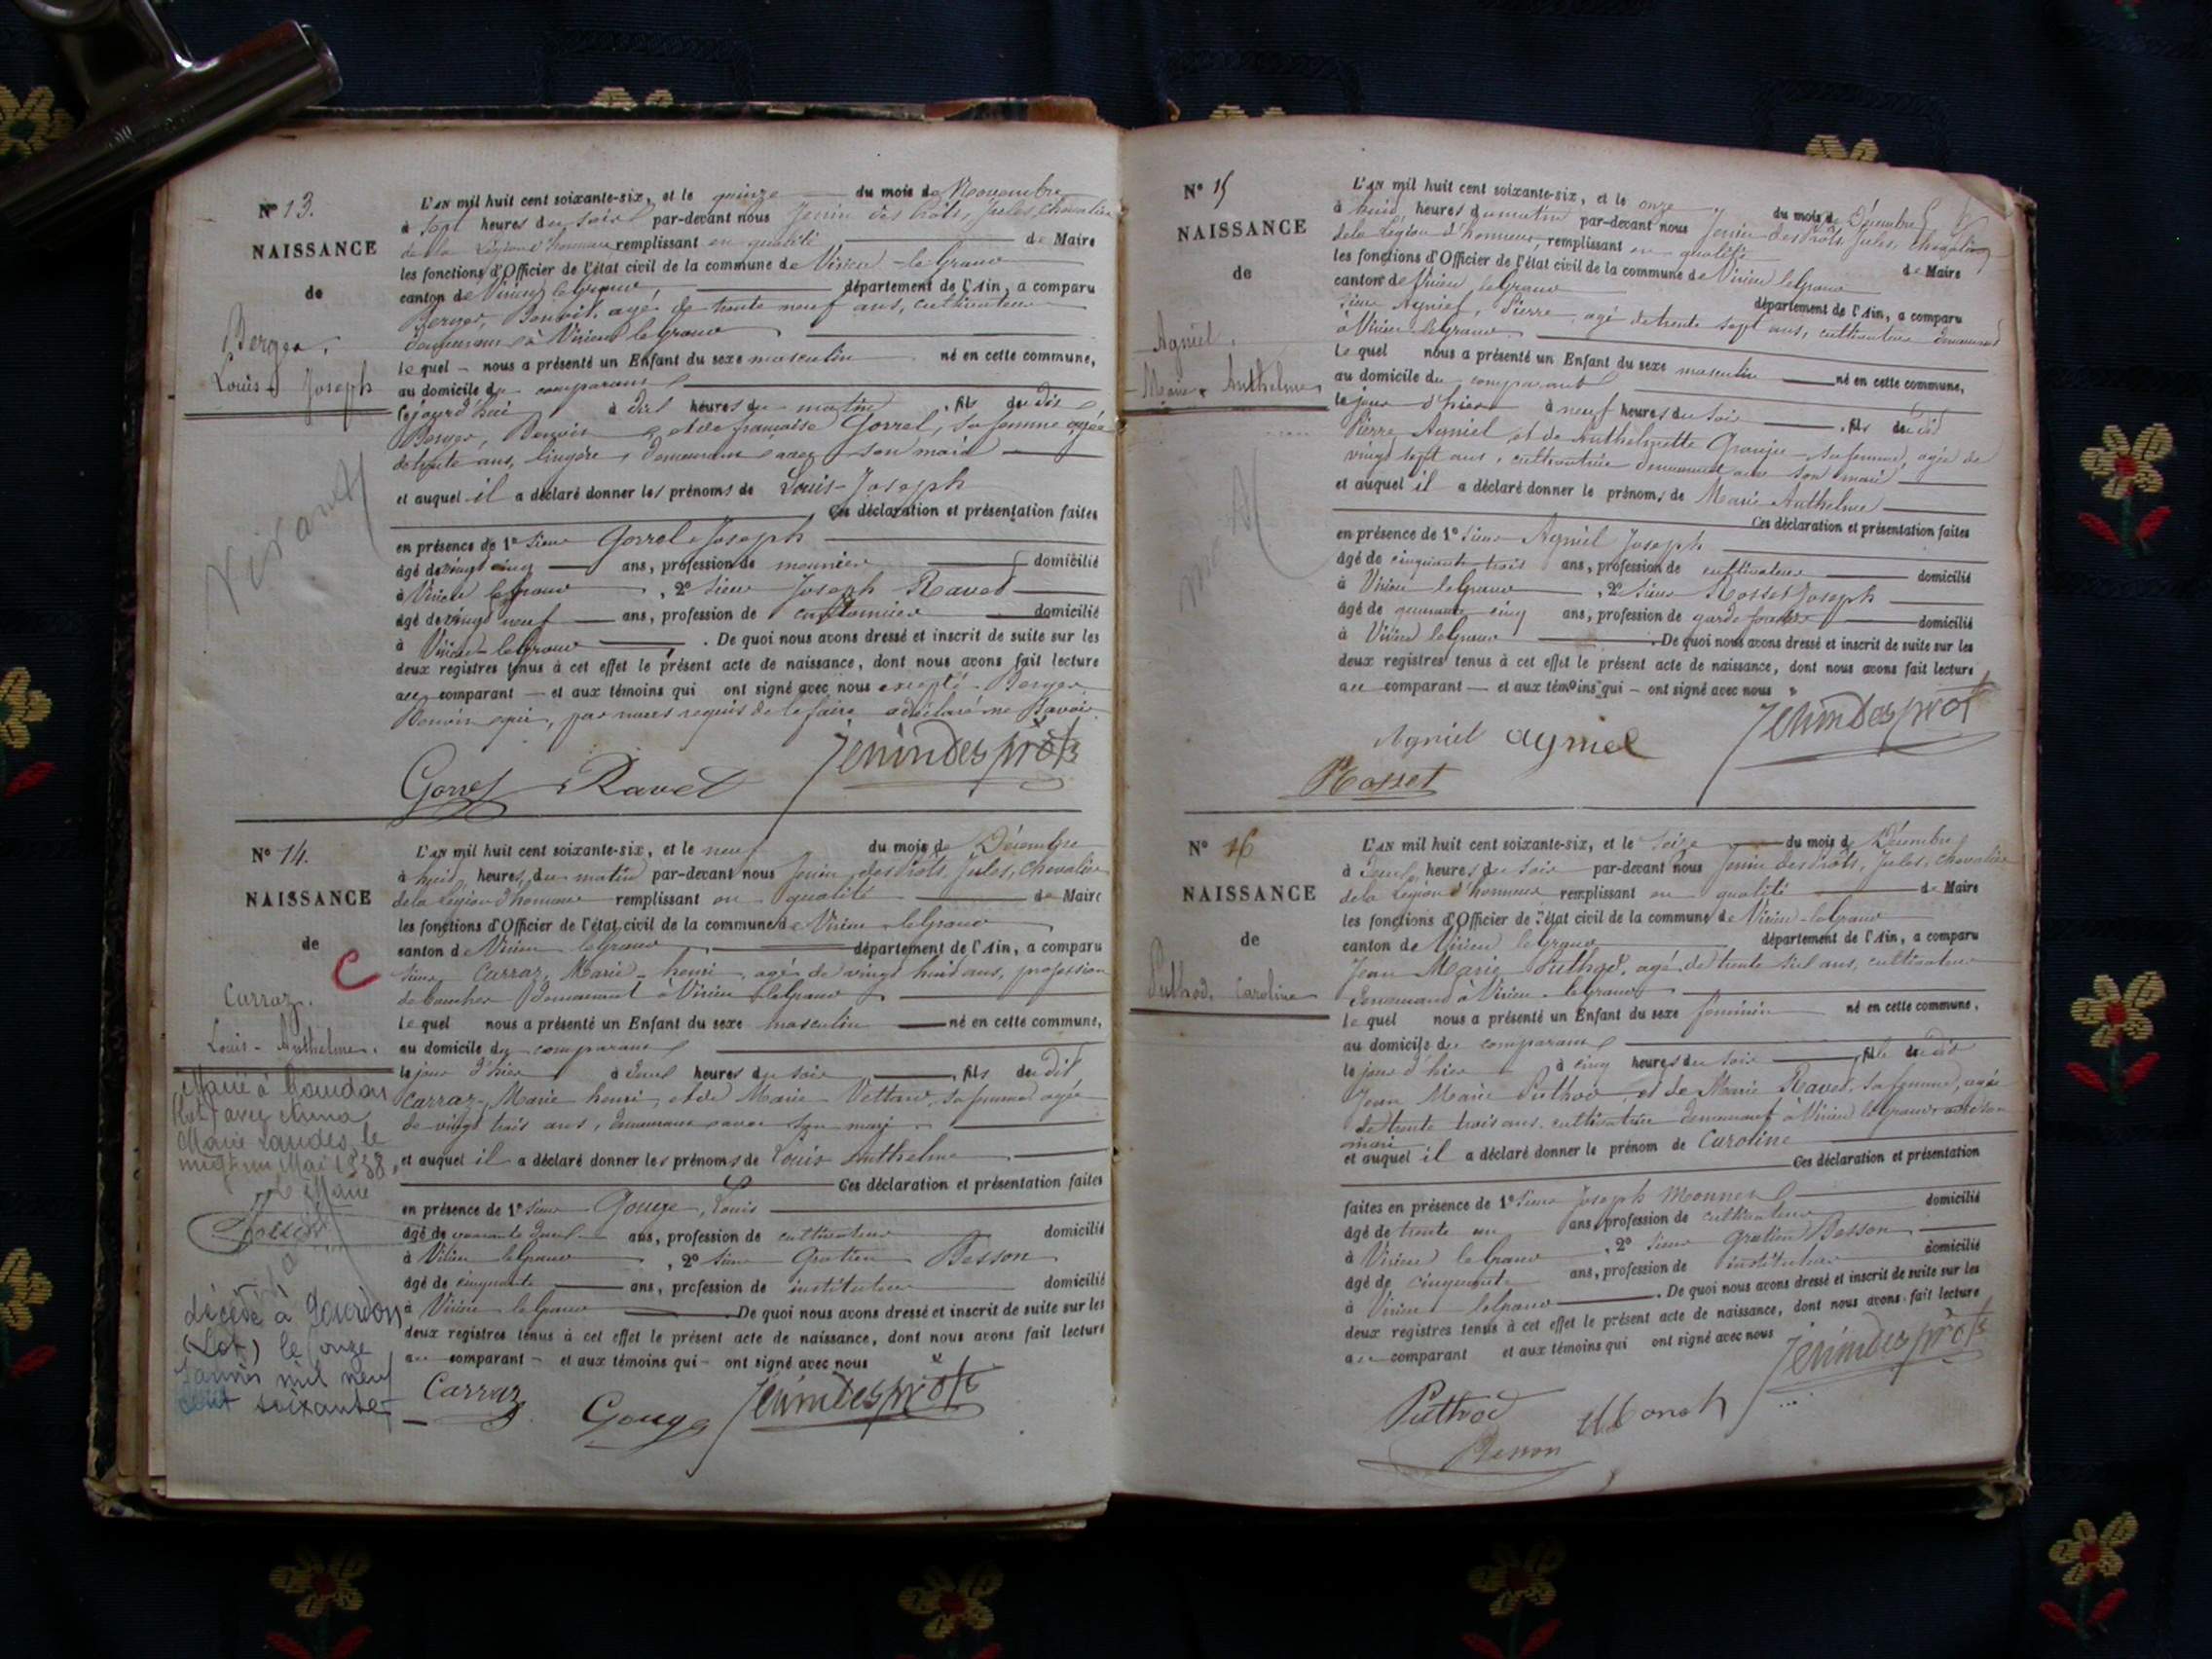 N° 13.
NAISSANCE
de
Berger.
Louis Joseph
L'AN mil huit cent soixante-six, et le quinze du mois de Novembre
à sept heures du soir par-devant nous Jenin des Prôts, Jules, Chevalier
de la Légion d'honneur remplissant en qualité de Maire
les fonctions d'Officier de l'état civil de la commune de Virieu-le-Grand
canton de Virieu le Grand, département de l'Ain, a comparu
Berger, Benoit, agé de trente neuf ans, cultivateur
demeurant à Virieu le Grand
lequel nous a présenté un Enfant du sexe masculin né en cette commune,
au domicile du comparant
cejourd'hui à dix heures du matin, fils dudit
Berger, Benoit et de françoise Gorrel, sa femme agée
de trente ans, lingère, demeurant avec son mari
et auquel il a déclaré donner les prénoms de Louis-Joseph
Ces déclaration et présentation faites
en présence de 1° Sieur Gorrel Joseph
âgé de vingt cinq ans, profession de meunier domicilié
à Virieu le Grand, 2° Sieur Joseph Ravet
âgé de vingt neuf ans, profession de cantonnier domicilié
à Virieu-le Grand. De quoi nous avons dressé et inscrit de suite sur les
deux registres tenus à cet effet le présent acte de naissance, dont nous avons fait lecture
au comparant et aux témoins qui ont signé avec nous excepté Berger
Benoit qui, par nous requis de le faire a déclaré ne Savoir.
Gorrel Ravet Jenindesprôts
N° 14.
NAISSANCE
de
C
Carraz.
Louis-Anthelme.
Marié à Gourdon
(Lot) avec Anna
Marie Landes le
vingt un Mai 1938,
Le Maire
décédé à Gourdon
(Lot) le onze
Janvier mil neuf
cent soixante
L'AN mil huit cent soixante-six, et le neuf du mois de Décembre
à huit heures du matin par-devant nous Jenin des Prôts, Jules, Chevalier
de la Légion d'honneur remplissant en qualité de Maire
les fonctions d'Officier de l'état civil de la commune de Virieu-le Grand
canton de Virieu le Grand, département de l'Ain, a comparu
Sieur Carraz, Marie-henri, agé de vingt huit ans, profession
de boucher demeurant à Virieu le Grand
lequel nous a présenté un Enfant du sexe masculin né en cette commune,
au domicile du comparant
le jour d'hier à deux heures du soir, fils dudit
Carraz, Marie henri, et de Marie Vettard, sa femme agée
de vingt trois ans, demeurant avec son mari.
et auquel il a déclaré donner les prénoms de Louis Anthelme
Ces déclaration et présentation faites
en présence de 1° Sieur Gouge, Louis
âgé de quarante deux ans, profession de cultivateur domicilié
à Virieu le Grand, 2° Sieur Gratien Besson
âgé de cinquante ans, profession de instituteur domicilié
à Virieu le Grand De quoi nous avons dressé et inscrit de suite sur les
deux registres tenus à cet effet le présent acte de naissance, dont nous avons fait lecture
au comparant et aux témoins qui ont signé avec nous
Carraz Gouge Jenindesprôts
N° 15
NAISSANCE
de
Agniel.
Marie Anthelme
L'AN mil huit cent soixante-six, et le onze du mois de Décembre
à huit heures du matin par-devant nous Jenin des Prôts, Jules, Chevalier
de la Légion d'honneur, remplissant en qualité de Maire
les fonctions d'Officier de l'état civil de la commune de Virieu le Grand
canton de Virieu le Grand département de l'Ain, a comparu
Sieur Agniel, Pierre, agé de trente sept ans, cultivateur demeurant
à Virieu le Grand
lequel nous a présenté un Enfant du sexe masculin né en cette commune,
au domicile du comparant
le jour d'hier à neuf heures du soir, fils dudit
Pierre Agniel et de Anthelmette Grangie sa femme, agée de
vingt sept ans, cultivatrice demeurant avec son mari
et auquel il a déclaré donner le prénoms de Marie Anthelme
Ces déclaration et présentation faites
en présence de 1° Sieur Agniel Joseph
âgé de cinquante trois ans, profession de cultivateur domicilié
à Virieu le Grand, 2° Sieur Rosset Joseph
âgé de quarante cinq ans, profession de garde forestier domicilié
à Virieu le Grand. De quoi nous avons dressé et inscrit de suite sur les
deux registres tenus à cet effet le présent acte de naissance, dont nous avons fait lecture
au comparant et aux témoins qui ont signé avec nous
Agniel agniel Jenindesprôts
Rosset
N° 16
NAISSANCE
de
Puthod, Caroline
L'AN mil huit cent soixante-six, et le Seize du mois de Décembre
à deux heures du soir par-devant nous Jenin des Prôts, Jules, Chevalier
de la Légion d'honneur remplissant en qualité de Maire
les fonctions d'Officier de l'état civil de la commune de Virieu-le Grand
canton de Virieu le Grand département de l'Ain, a comparu
Jean Marie Puthod, agé de trente six ans, cultivateur
demeurant à Virieu-le Grand
lequel nous a présenté un Enfant du sexe feminin né en cette commune,
au domicile du comparant
le jour d'hier à cinq heures du soir, fille dudit
Jean Marie Puthod, et de Marie Ravet, sa femme, agée
de trente trois ans, cultivatrice demeurant à Virieu le Grand avec son
mari
et auquel il a déclaré donner le prénom de Caroline
Ces déclaration et présentation
faites en présence de 1° Sieur Joseph Monnet domicilié
âgé de trente un ans, profession de cultivateur
à Virieu le Grand, 2° Sieur Gratien Besson
âgé de cinquante ans, profession de instituteur domicilié
à Virieu le Grand. De quoi nous avons dressé et inscrit de suite sur les
deux registres tenus à cet effet le présent acte de naissance, dont nous avons fait lecture
au comparant et aux témoins qui ont signé avec nous
Puthod Jenindesprôts
Besson